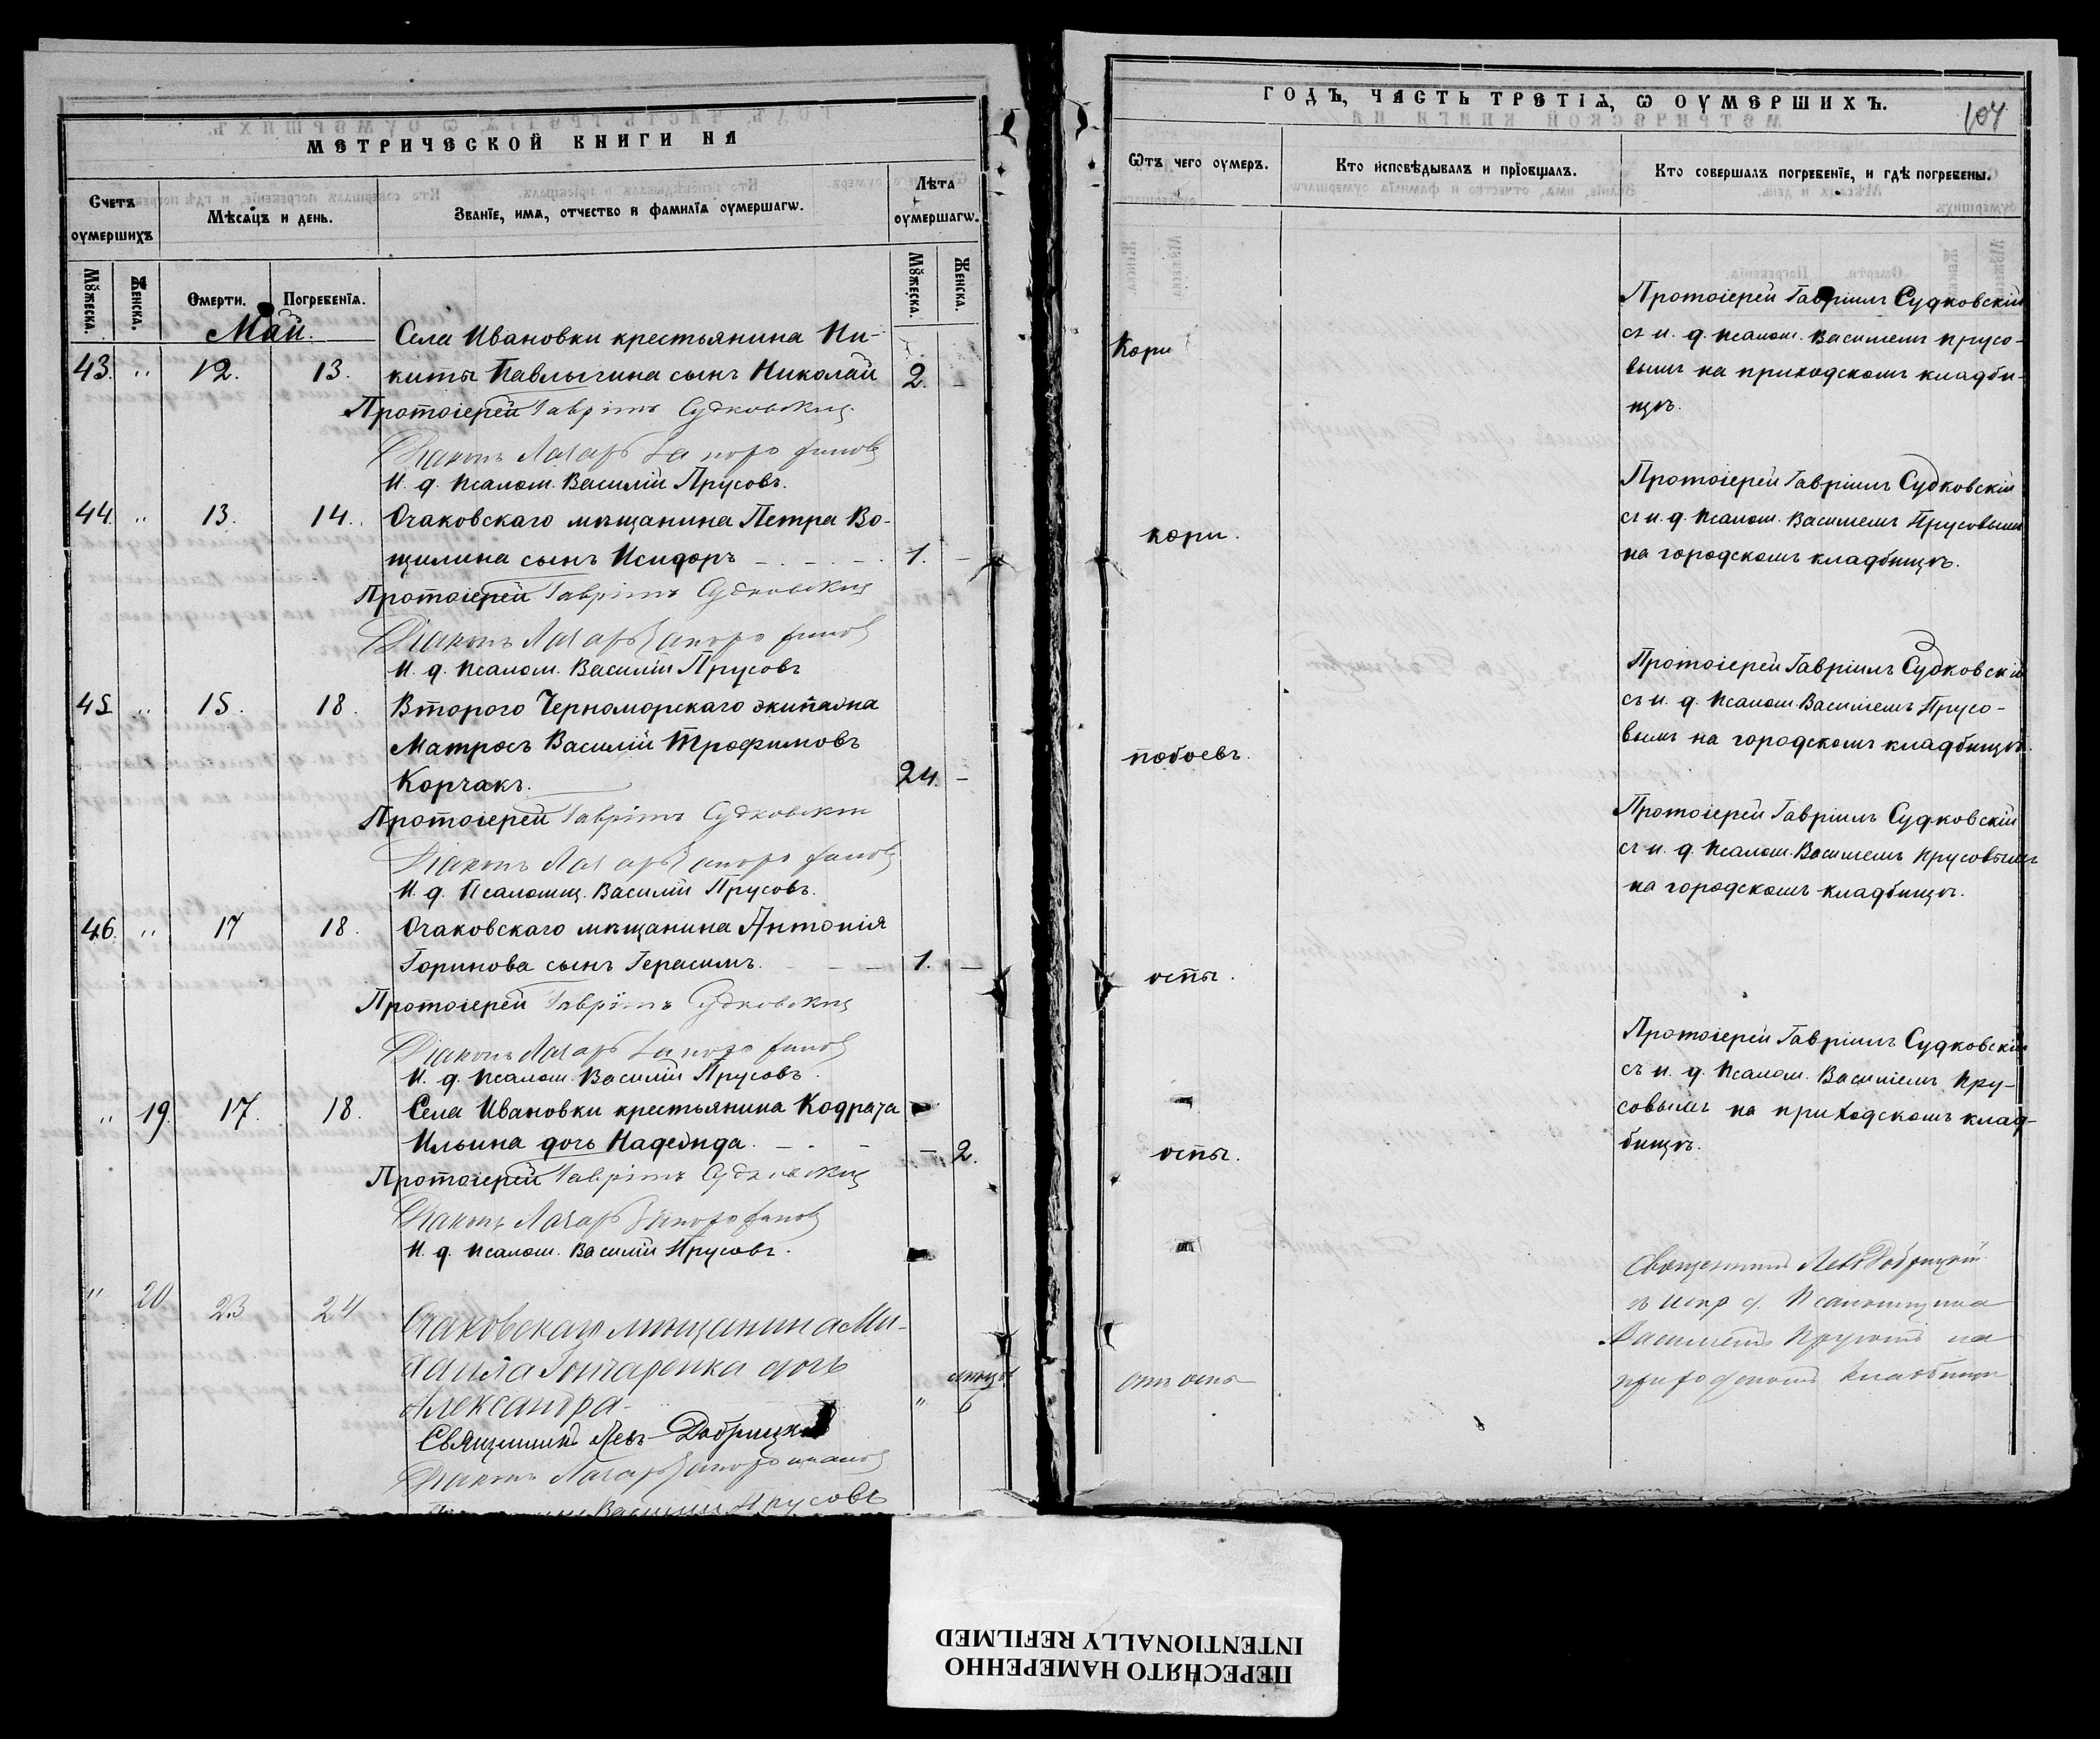 МЕТРИЧЕСКОЙ КНИГИ НА
Счетъ оумершихъ
Мѣсяцъ и день.
Званіе, имѧ, отчество и фамиліѧ оумершагѡ.
Лѣта оумершагѡ.
Мꙋжеска.
Женска.
Смерти.
Погребеніѧ.
Мꙋжеска.
Женска.
Май.
Села Ивановки крестьянина Ни-
43. " 12. 13. киты Павлычина сынъ Николай 2. –
Протоіерей Гавріилъ Судковскій
Діаконъ Лазарь
И. д. псалом. Василій Прусовъ.
44. " 13. 14. Очаковскаго мѣщанина Петра Во-
щилина сынъ Исидоръ 1. –
Протоіерей Гавріилъ Судковскій
Діаконъ Лазарь
И. д. псалом. Василій Прусовъ
45 " 15. 18. Второго Черноморскаго экипажа
Матросъ Василій Трофимовъ
Корчакъ. 24. –
Протоіерей Гавріилъ Судковскій
Діаконъ Лазарь
И. д. Псаломщ. Василій Прусовъ.
46. " 17 18. Очаковскаго мѣщанина Антонія
Горинова сынъ Герасимъ. 1. –
Протоіерей Гавріилъ Судковскій
Діаконъ Лазарь
И. д. псалом. Василій Прусовъ.
" 19. 17. 18. Села Ивановки крестьянина Кодрата
Ильина дочь Надежда. – 2.
Протоіерей Гавріилъ Судковскій
Діаконъ Лазарь
И. д. псалом. Василій Прусовъ.
" 20 23 24 Очаковскаго мѣщанина Ми-
хаила Гончаренка дочь
Александра " 6
Священникъ Левъ Добрицкій
Діаконъ Лазарь
Василій Прусовъ
ГОДЪ, ЧАСТЬ ТРЕТІѦ, Ѡ ОУМЕРШИХЪ.
104
Ѿтъ чего оумеръ.
Кто исповѣдывалъ и пріобщалъ.
Кто совершалъ погребеніе, и гдѣ погребены.
Кори
Протоіерей Гавріилъ Судковскій
съ и. д. псалом. Василіемъ Прусо-
вымъ на приходскомъ кладби-
щѣ.
кори.
Протоіерей Гавріилъ Судковскій
съ и. д. псалом. Василіемъ Прусовымъ
на городскомъ кладбищѣ.
побоевъ.
Протоіерей Гавріилъ Судковскій
съ и. д. псалом. Василіемъ Прусо-
вымъ на городскомъ кладбищѣ.
оспы.
Протоіерей Гавріилъ Судковскій
съ и. д. псалом. Василіемъ Прусовымъ
на городскомъ кладбищѣ.
оспы.
Протоіерей Гавріилъ Судковскій
съ и. д. псалом. Василіемъ Пру-
совымъ на приходскомъ клад-
бищѣ.
отъ оспы
Священникъ Левъ Добрицкій
съ испр д. Псаломщика
Василіемъ Прусовъ на
приходскомъ кладбищѣ
ПЕРЕСНЯТО НАМЕРЕННО
INTENTIONALLY REFILMED